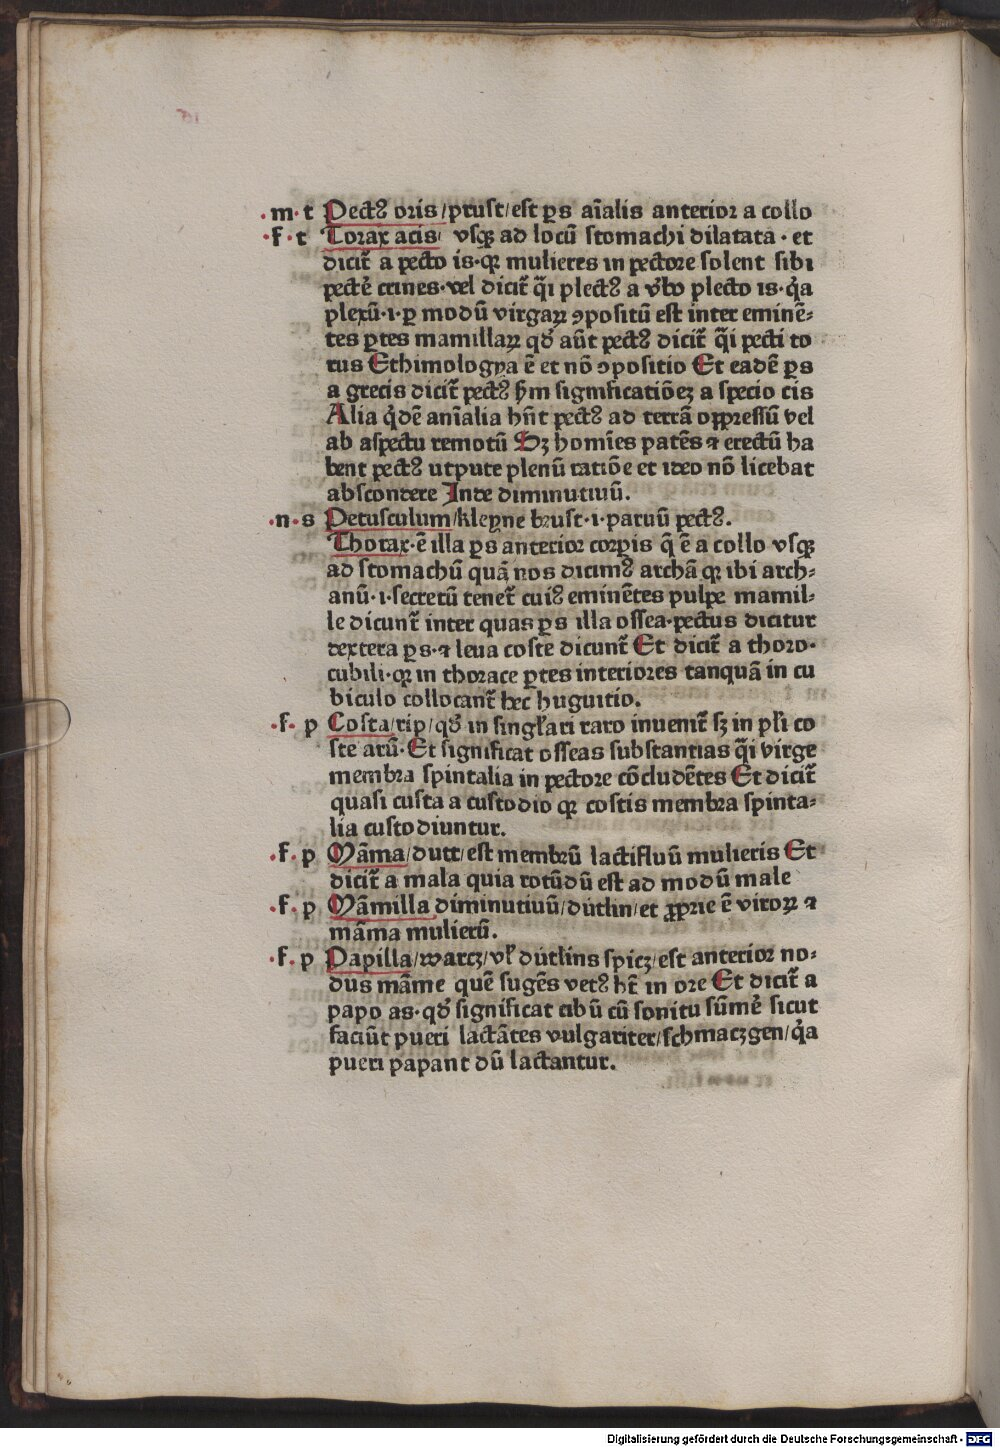 ·m·t Pectꝰ oris/prust/est ꝑs aĩalis anterior a collo
·f·t Torax acis/ vsqꝫ ad locũ stomachi dilatata · et
dicit̃ a pecto is·qꝛ mulieres in pectore solent sibi
pectẽ crines·vel dicit̃ q̃i plectꝰ a v̓bo plecto is·q̇a
plexũ·i·ꝑ modũ virgaꝝ ꝯpositũ est inter eminẽ⸗
tes ꝑtes mamillaꝝ qđ aũt pectꝰ dicit̃ q̃i pecti to
tus Ethimologya ẽ et nõ ꝯpositio Et eadẽ ꝑs
a grecis dicit̃ pectꝰ ẜm significatiõeꝫ a specio cis
Alia q̇dẽ anĩalia hñt pectꝰ ad terrã oppressũ vel
ab aspectu remotũ Sꝫ homĩes patẽs ⁊ erectũ ha
bent pectꝰ utpute plenũ ratiõe et ideo nõ licebat
abscondere Inde diminutiuũ.
·n·s Petusculum/kleyne brust·i·paruũ pectꝰ.
Thorax·ẽ illa ꝑs anterior corꝑis q̃ ẽ a collo vsqꝫ
ad stomachũ quã nos dicimꝰ archã qꝛ ibi arch⸗
anũ·i·secretũ tenet̃ cuiꝰ eminẽtes pulpe mamil⸗
le dicunt̃ inter quas ꝑs illa ossea·pectus dicitur
dextera ꝑs·⁊ leua coste dicunt̃ Et dicit̃ a thoro·
cubili·qꝛ in thorace ꝑtes interiores tanquã in cu
biculo collocant̃ hec huguitio.
·f·p Costa/rip/qđ in singl̃ari raro inuenit̃ sꝫ in pl̃i co
ste arũ·Et significat osseas substantias q̃i virge
membra spintalia in pectore cõcludẽtes Et dicit̃
quasi custa a custodio qꝛ costis membra spinta⸗
lia custodiuntur.
·f·p Mãma/dutt/est membrũ lactifluũ mulieris Et
dicit̃ a mala quia rotũdũ est ad modũ male
·f·p Mãmilla diminutiuũ/dútlin/et ꝓprie ẽ viroꝝ ⁊
mãma mulierũ.
·f·p Papilla/warcꝫ/vl̃ dútlins spicꝫ/est anterior no⸗
dus mãme quẽ sugẽs vetꝰ hꝫ in ore Et dicit̃ a
papo as·qđ significat cibũ cũ sonitu sũmẽ sicut
faciũt pueri lactãtes vulgariter/schmacꝫgen/q̇a
pueri papant dũ lactantur.
Digitalisierung gefördert durch die Deutsche Forschungsgemeinschaft - DFG